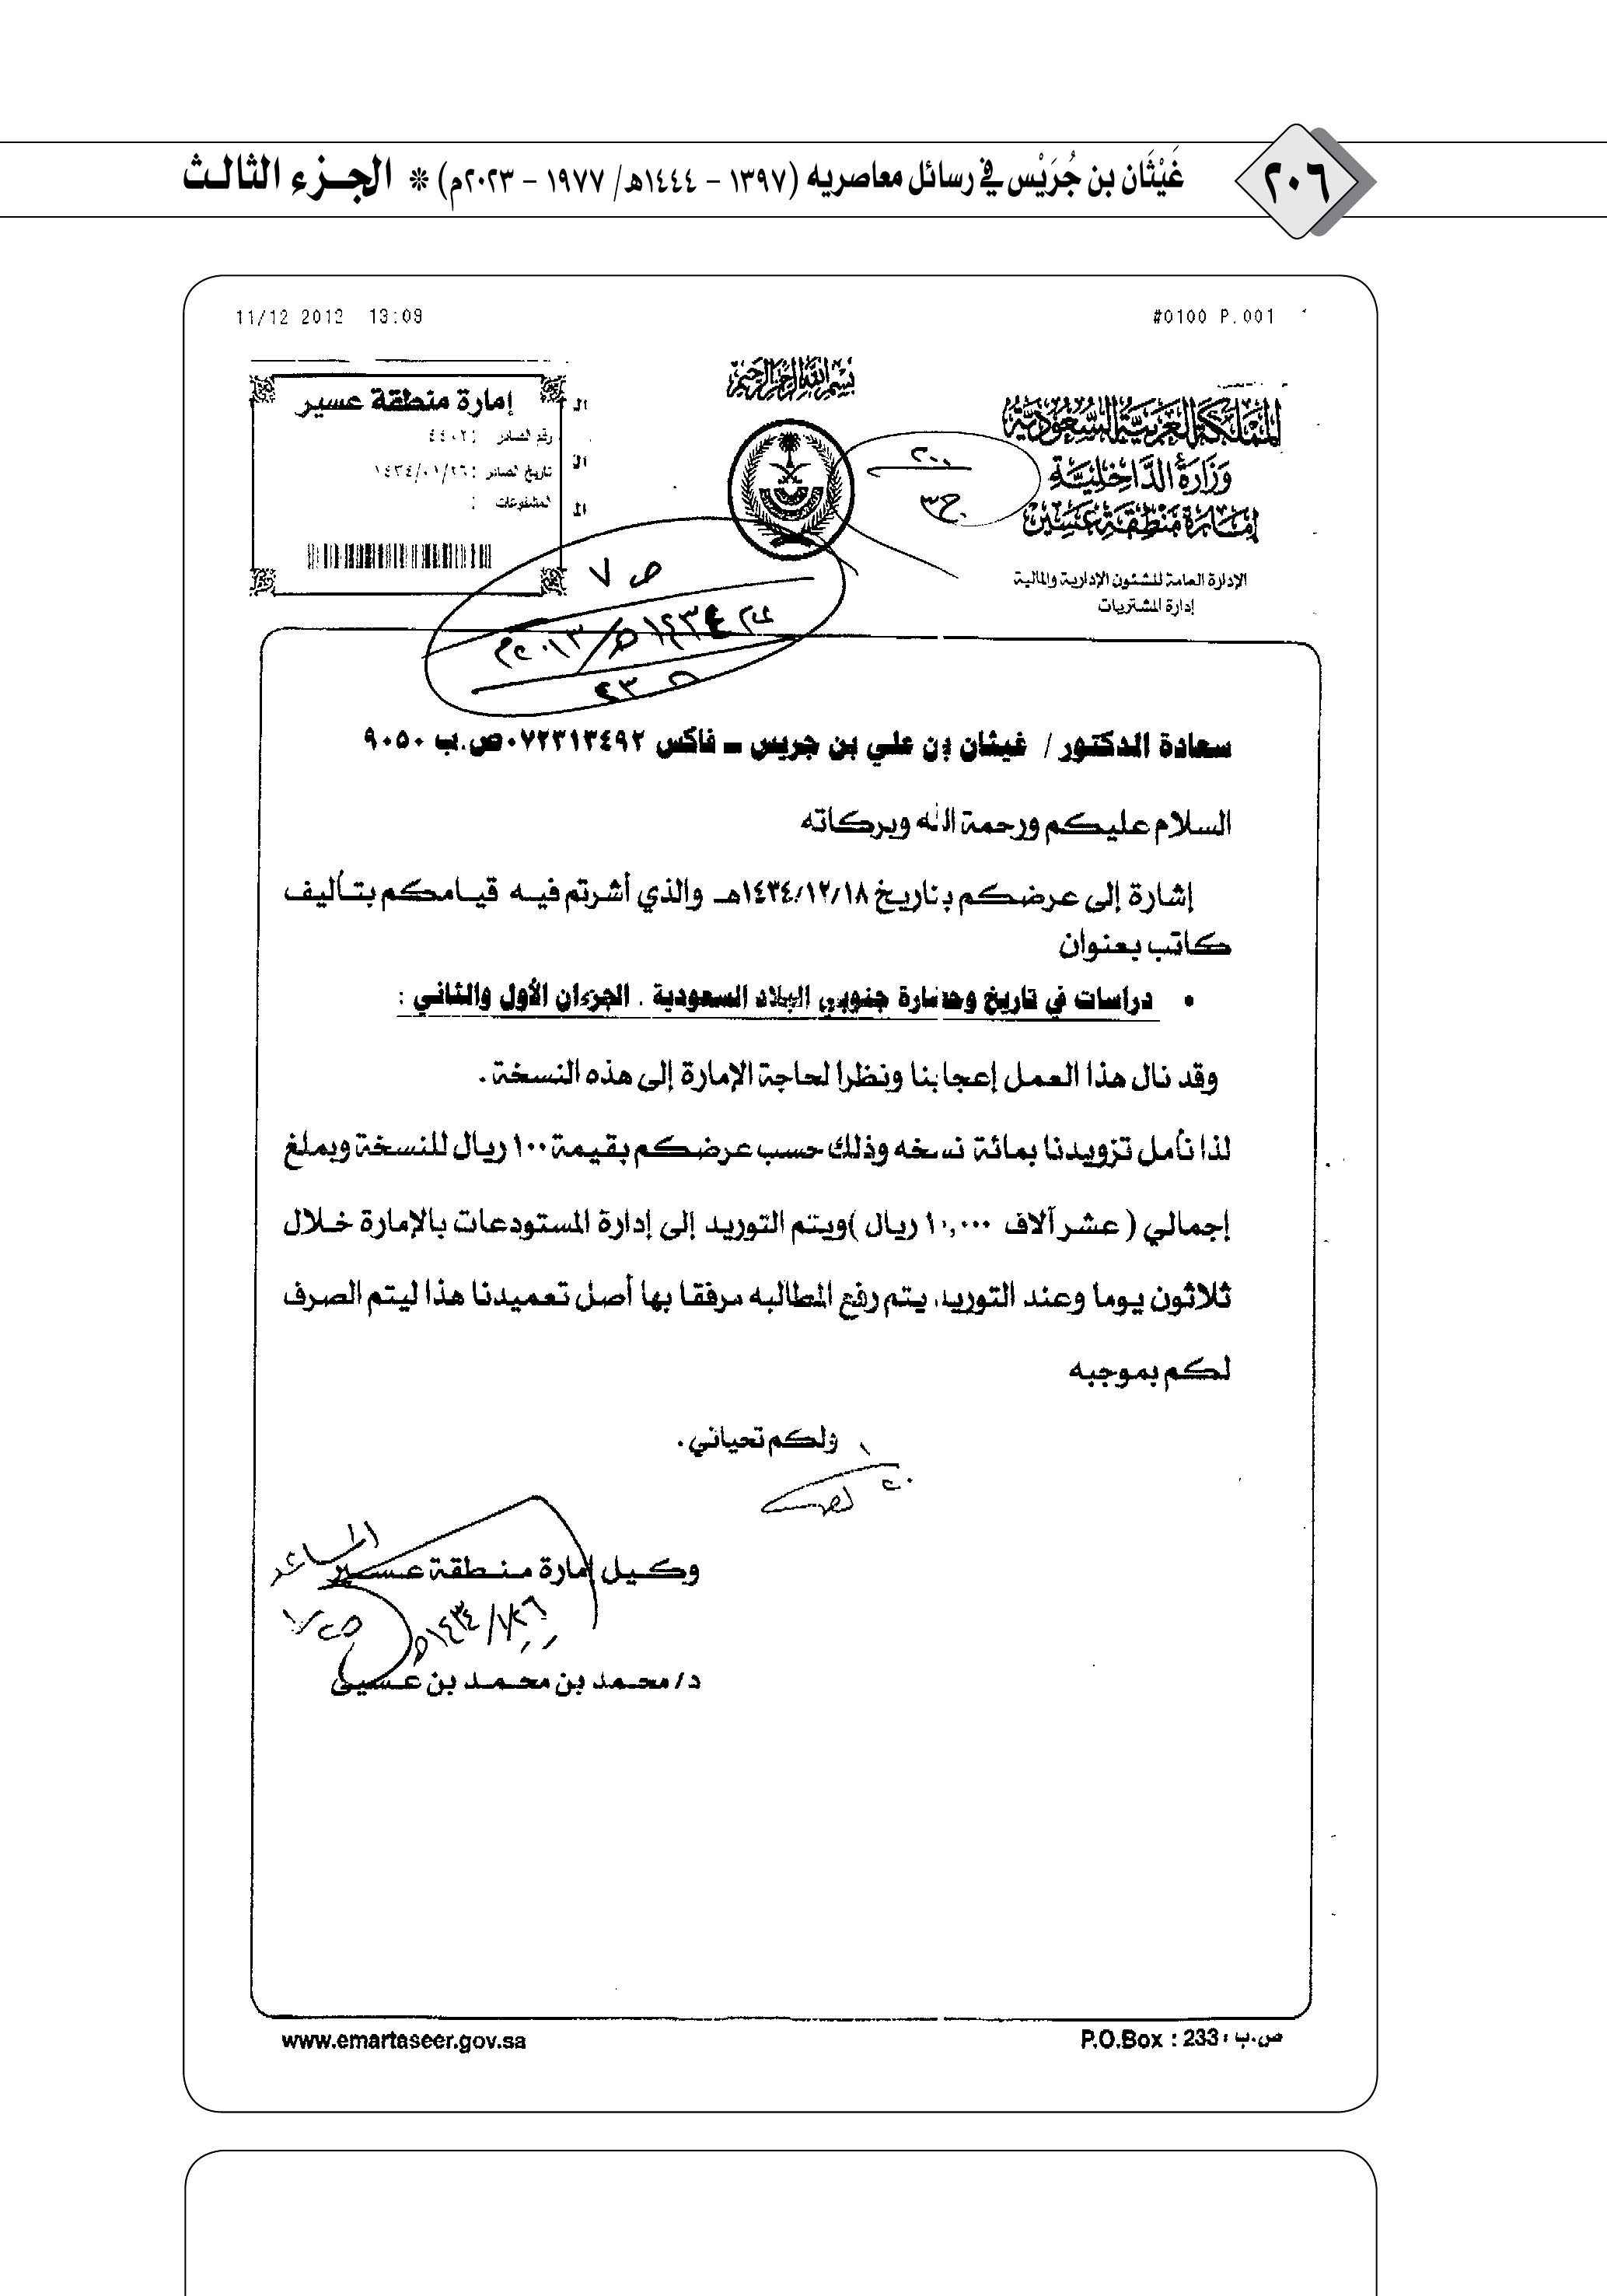 غَيْثَان بن جُرَيْس في رسائل معاصريه (١٣٩٧ - ١٤٤٤هـ/ ١٩٧٧ - ٢٠٢٣م) * الجزء الثالث
٢٠٦
11/12 2012 13:09
#0100 P.001
بسم الله الرحمن الرحيم
المملكة العربية السعودية
وزارة الداخلية
إمارة منطقة عسير
الإدارة العامة للشئون الإدارية والمالية
إدارة المشتريات
إمارة منطقة عسير
رقم الصادر : ٤٤٠٢
تاريخ الصادر : ١٤٣٤/٠١/٢٦
المشفوعات :
٢٠٠
ج٣
ص ٧
١٤٣٤هـ/٢٠١٣م
سعادة الدكتور / غيثان بن علي بن جريس ــ فاكس ٠٧٢٣١٣٤٩٢ص.ب ٩٠٥٠
السلام عليكم ورحمة الله وبركاته
إشارة إلى عرضكم بتاريخ ١٤٣٤/١٢/١٨هـ والذي أشرتم فيه قيامكم بتأليف
كاتب بعنوان
• دراسات في تاريخ وحضارة جنوبي البلاد السعودية . الجزءان الأول والثاني :
وقد نال هذا العمل إعجابنا ونظرا لحاجة الإمارة إلى هذه النسخة .
لذا نأمل تزويدنا بمائة نسخه وذلك حسب عرضكم بقيمة ١٠٠ ريال للنسخة وبملغ
إجمالي ( عشر آلاف ١٠,٠٠٠ ريال )ويتم التوريد إلى إدارة المستودعات بالإمارة خلال
ثلاثون يوما وعند التوريد يتم رفع المطالبه مرفقا بها أصل تعميدنا هذا ليتم الصرف
لكم بموجبه
ولكم تحياتي .
وكيل إمارة منطقة عسير
المساعد
١٤٣٤/١/٢٦هـ
د/ محمد بن محمد بن عسيى
www.emartaseer.gov.sa
P.O.Box : 233 : ص.ب